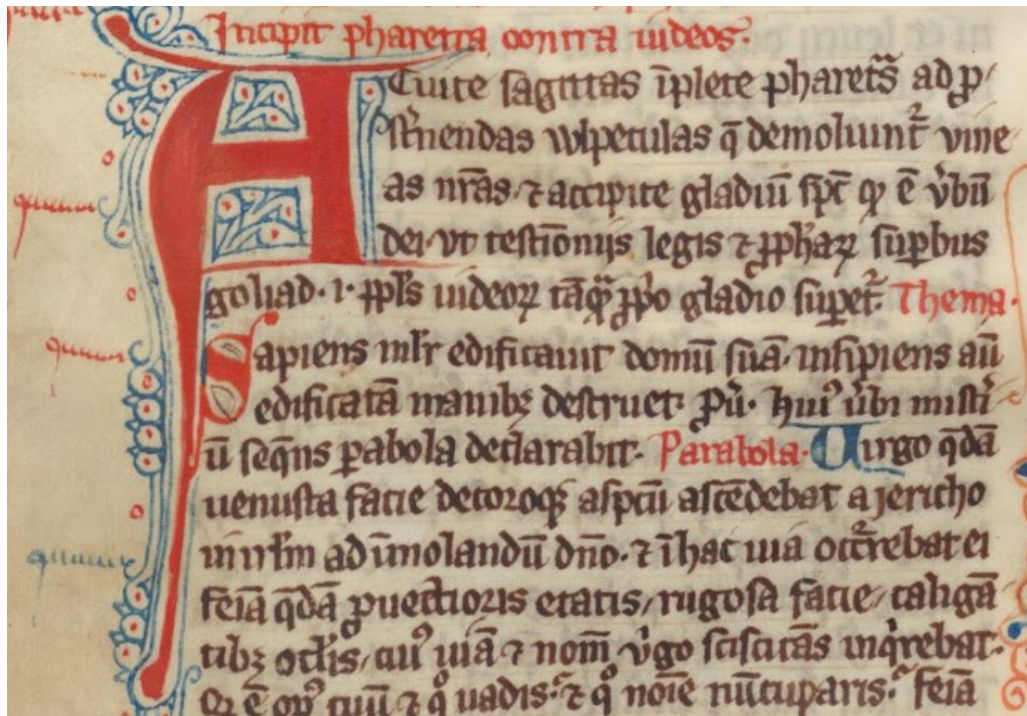 Incipit pharetra contra iudeos.
ACuite sagittas īplete pharet̃s ad ꝓ/
st̾nendas wlpeculas q̄ demoliunt᷑ vine
as nr̃as. ⁊ accipite gladiū sp̄c qͥ ē v̾bū
dei. vt testīonijs legis ⁊ ꝓph̾aꝝ suꝑbus
goliad. i. ppl̃s iudeoꝝ tāqᷓ ꝓp̾o gladio suꝑet᷑. Thema.
Sapiens ml̾r edificauit domū suā. insipiens aū
edificatā manibꝫ destruet. ꝓū. huiꝰ u̾bi misti/
ū seq̄ns ꝑabola declarabit. Parabola. Uirgo q̄dā
uenusta facie decoroqꝫ aspcū ascēdebat a jericho
in irl̃m ad īmolandū dn̄o. ⁊ ī hac uia occr̄rebat ei
feīa q̄dā ꝓuectioris etatis, rugosa facie, caligā
tibꝫ oclīs, cuiꝰ uiā ⁊ nom̄ v̾go sciscitās inqͥrebat.
Qͥ ē opꝰ tuū ⁊ qͦ uadis. ⁊ qͦ noīe nūcuparis. feīa